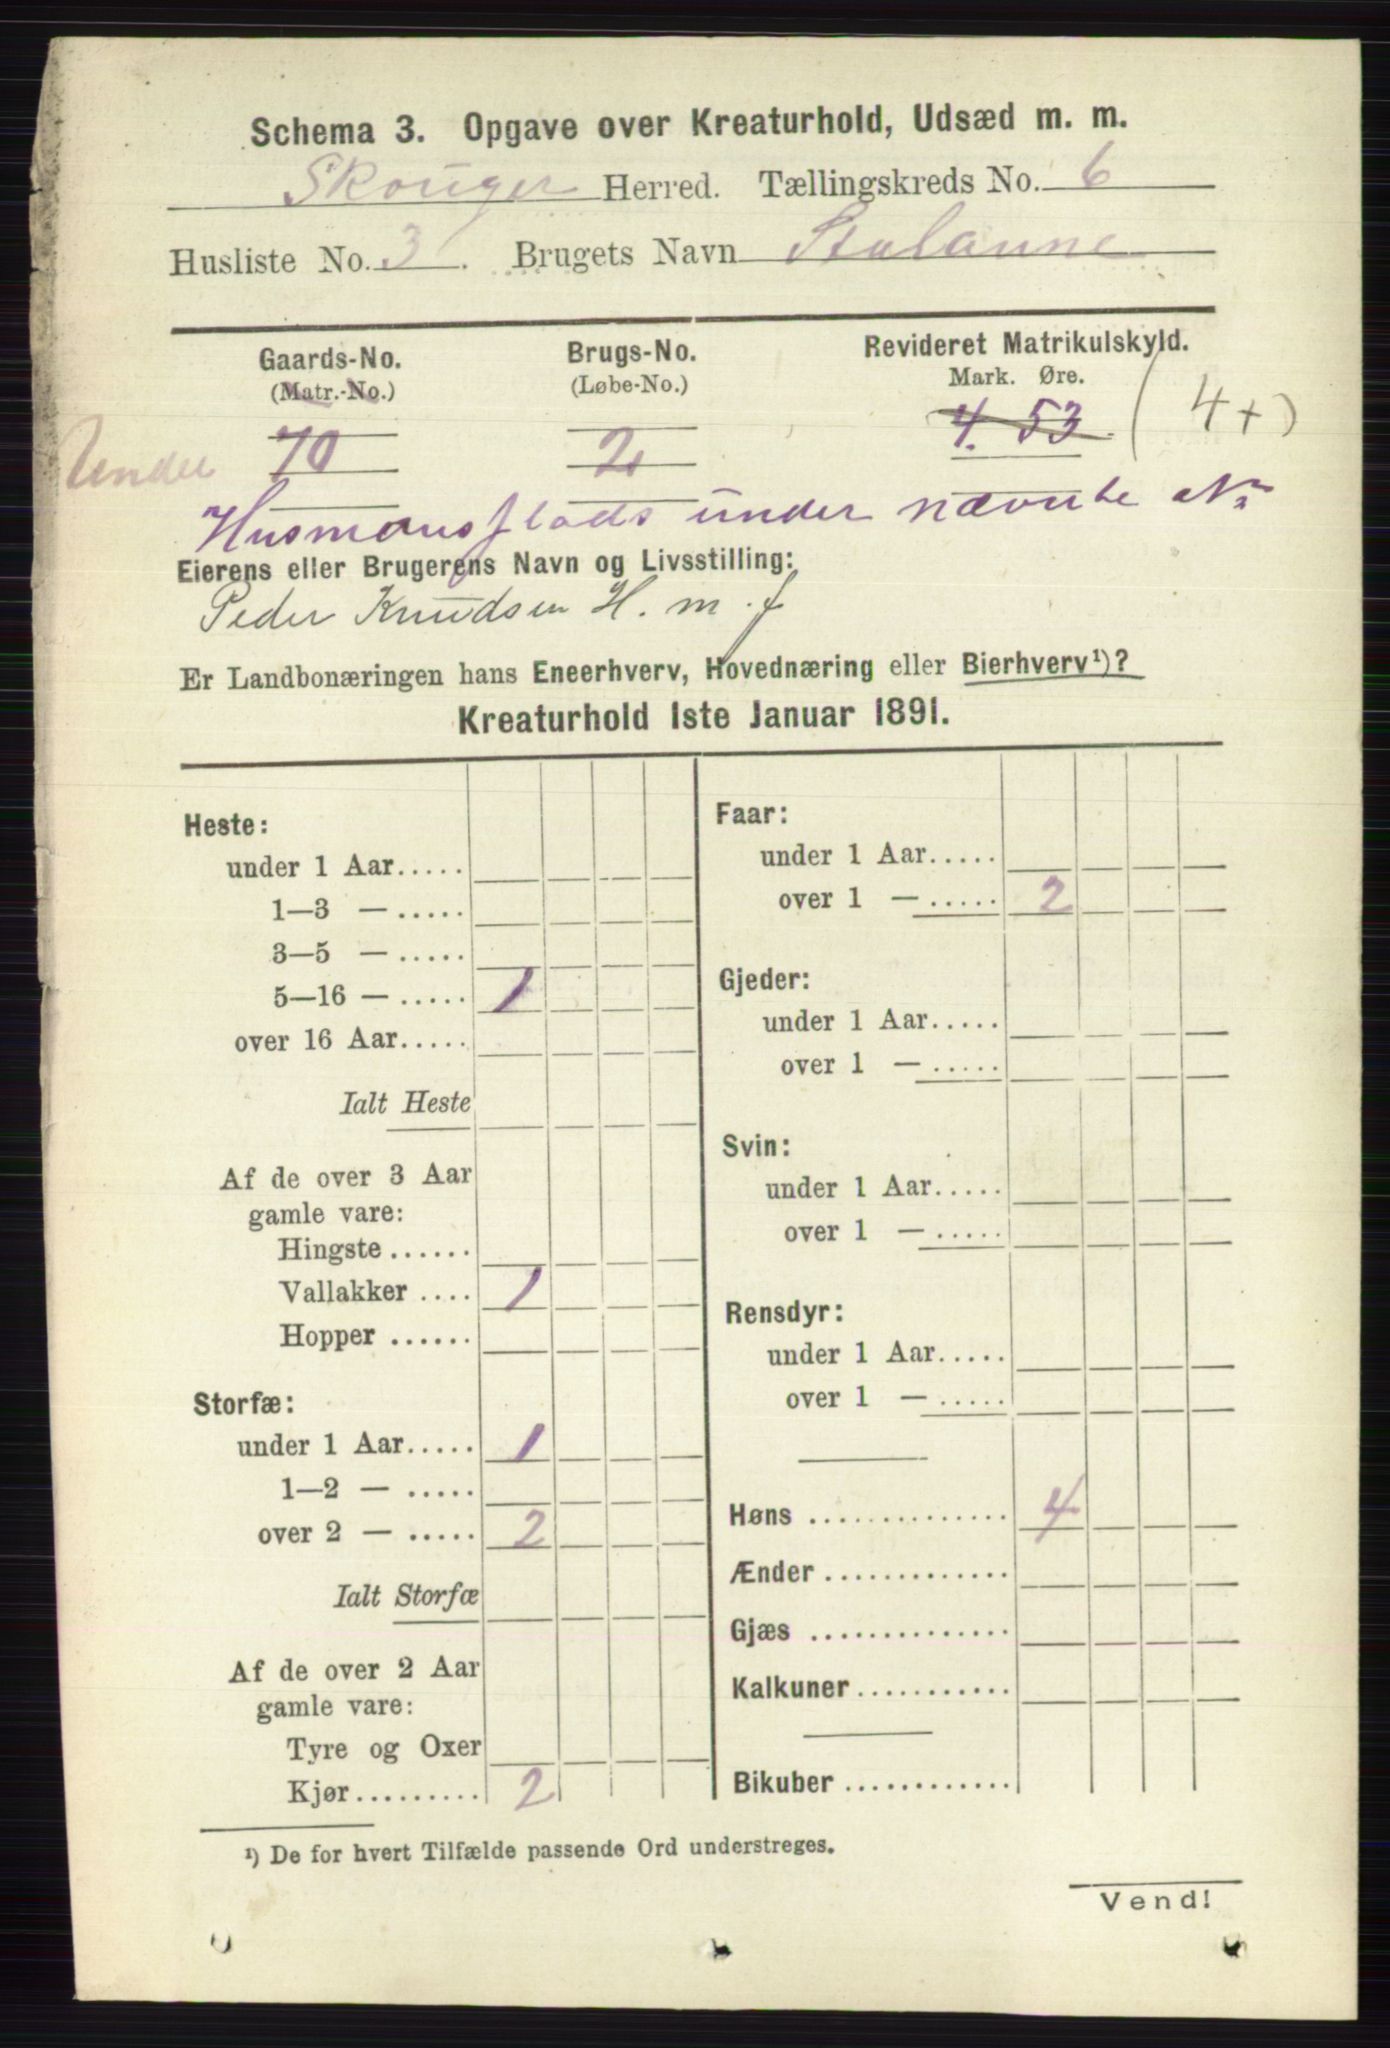 Schema 3. Opgave over Kreaturhold, Udsæd m. m.
Skouger Herred. Tællingskreds No. 6
Husliste No. 3. Brugets Navn Stulanne
Gaards-No. Brugs-No. Revideret Matrikulskyld.
(Matr.-No.) (Løbe-No.) Mark. Øre.
Under 70 2 4. 53 (4+)
Husmansplads under nævnte No
Eierens eller Brugerens Navn og Livsstilling:
Peder Knudsen H. m. f
Er Landbonæringen hans Eneerhverv, Hovednæring eller Bierhverv¹)?
Kreaturhold 1ste Januar 1891.
Heste:
under 1 Aar.....
1—3 — .....
3—5 — .....
5—16 — ..... 1
over 16 Aar.....
Ialt Heste
Af de over 3 Aar
gamle vare:
Hingste ......
Vallakker .... 1
Hopper ......
Storfæ:
under 1 Aar..... 1
1—2 — .....
over 2 — ..... 2
Ialt Storfæ
Af de over 2 Aar
gamle vare:
Tyre og Oxer
Kjør......... 2
Faar:
under 1 Aar.....
over 1 — ..... 2
Gjeder:
under 1 Aar.....
over 1 — .....
Svin:
under 1 Aar.....
over 1 — .....
Rensdyr:
under 1 Aar.....
over 1 — .....
Høns .............. 4
Ænder .............
Gjæs ..............
Kalkuner...........
Bikuber ............
¹) De for hvert Tilfælde passende Ord understreges.
Vend!